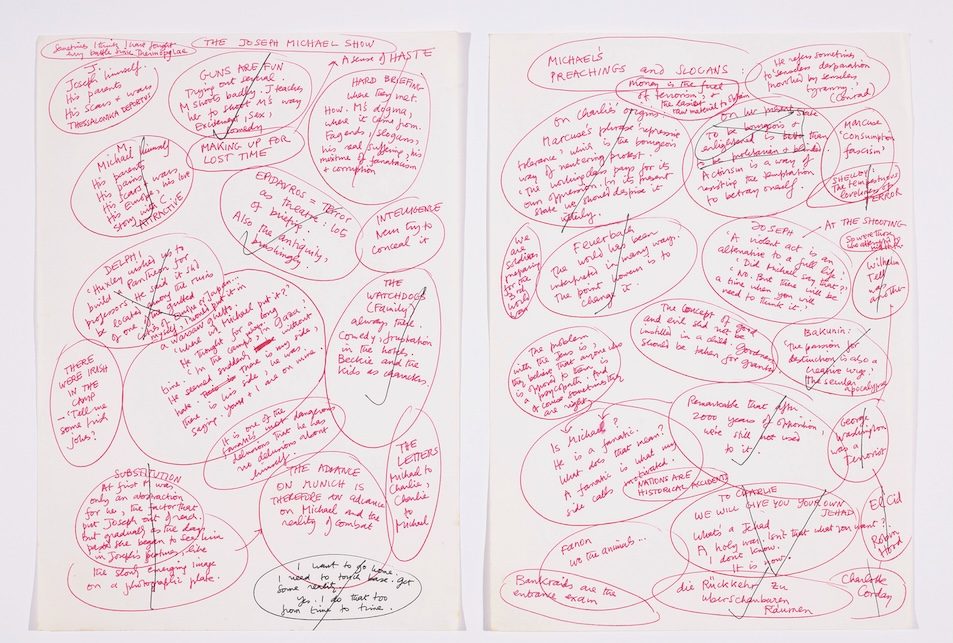 Sometimes I think I have fought
every battle since Thermopylae
THE JOSEPH MICHAEL SHOW
A sense of HASTE
J.
Joseph himself.
His parents
His scars + wars
THESSALONIKA DEPORTUS
GUNS ARE FUN
Trying out sexual.
M shoots badly. J teaches
her to shoot M's way
Excitement, sex,
comedy
HARD BRIEFING
where they met.
How. M's dogma,
where it came from.
Fagends, slogans,
his real suffering, his
mixture of fanaticism
+ corruption
MAKING UP FOR
LOST TIME
M.
Michael himself
His parents
His pains
His scars + wars
His Europe, his love
story with C.
ATTRACTIVE
EPIDAVROS = TERROR
as theatre. Lots
of briefing.
Also the antiquity,
bashings.
INTELLIGENCE
Never try to
conceal it
DELPHI
'Huxley wished us to
build a Pantheon for
professors. He said it shd
be located among the ruins
of one of the gutted
cities of Europe or Japan...
myself, I would put it in
a Warsaw ghetto.'
'Where wd Michael put it?'
He thought for a long
time. 'In the camps of Gaza.'
He seemed suddenly without
hate. there is my side,
there is his side, he was
saying yours + I are on mine.
THE
WATCHDOGS
(Family)
always there.
Comedy, frustration
in the hotels.
Beckie and the
kids as characters.
THERE
WERE IRISH
IN THE
CAMP
— Tell me
some Irish
jokes?
It is one of the
fanatic's most dangerous
delusions that he has
no delusions about
himself.
THE
LETTERS
Michael to
Charlie,
Charlie
to
Michael
SUBSTITUTION
At first it was
only an abstraction
for her, the factor that
put Joseph out of reach.
But gradually as the days
passed she began to see him
in Joseph's features, like
the slowly emerging image
on a photographic plate.
THE ADVANCE
ON MUNICH IS
THEREFORE AN advance
on Michael and the
reality of combat
I want to go home.
I need to touch base. Get
some reality.
Yes. I do that too
from time to time.
MICHAEL'S
PREACHINGS and SLOGANS:
He refers sometimes
to senseless desperation
provoked by senseless
tyranny.
(Conrad)
Money is the fuel
of terrorism, +
the easiest
raw material to obtain
On Charlie's origins:
Marcuse's phrase 'repressive
tolerance' which is the bourgeois
way of neutering protest.
'The working class pays for its
own oppression. In its present
state we should despise it
utterly.'
On her present state
To be bourgeois +
enlightened is better than
to be proletarian + blind.
Activism is a way of
resisting the temptation
to betray oneself
MARCUSE
'Consumption
fascism'
SHELLEY
The tempestuous
loveliness of
TERROR
We are
soldiers
preparing
for the
3rd
World
War
Feuerbach
The world has been
interpreted in many ways.
The point however is to
change it.
JOSEPH — AT THE SHOOTING
'A violent act is an
alternative to a full life.'
'Did Michael say that?'
'No. But there will be
a time when you will
need to think it.'
Wilhelm
Tell
was
another
The problem
with the Jews is,
they believe that anyone who
is opposed to them is
a psychopath. And
of course sometimes they
are right.
The concept of good
and evil shd not be
instilled in a child. Goodness
should be taken for granted
Bakunin:
The passion for
destruction is also a
creative urge.
The secular
apocalypse
Is Michael?
He is a fanatic.
What does that mean?
A fanatic is what my
side calls motivated.
Remarkable that after
2000 years of opposition,
we're still not used
to it.
George
Washington
was a
Terrorist
NATIONS ARE
HISTORICAL ACCIDENTS
Fanon
We the animals...
TO CHARLIE
WE WILL GIVE YOU YOUR OWN
JEHAD
What's a Jehad
A holy war. Isn't that what you want?
I don't know.
It is now
El Cid
Robin
Hood
Bankraids are the
entrance exam
die Rückkehr zu
überschaubaren
Räumen
Charlotte
Corday